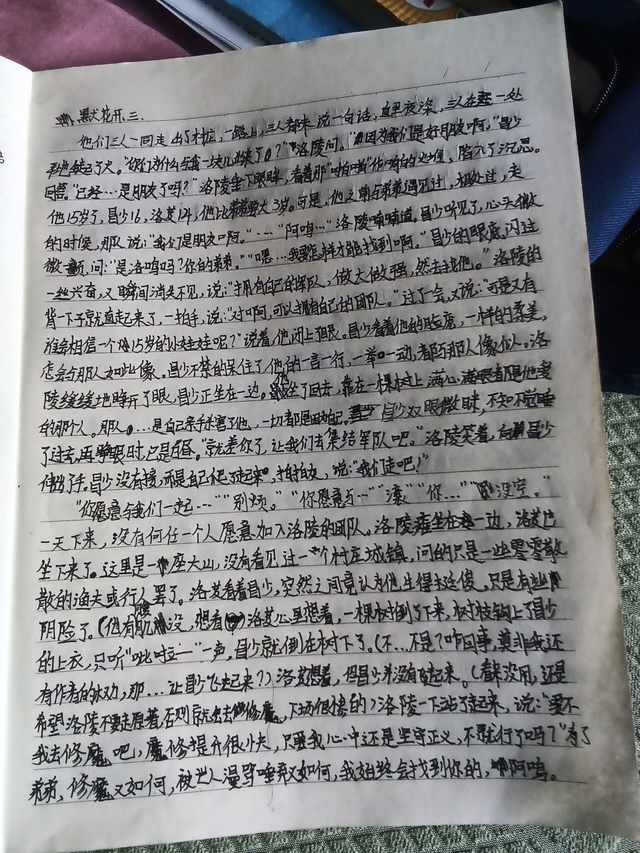 黑犬花开.三.
他们三人一同走出了村庄,一路上,三人都未说一句话,直至夜深,三人在一处
燃起了火。"你们为什么与我一块儿出来了?"洛陵问。"因为我们是好朋友啊。"昌少
回答。"已经…是朋友了吗?"洛陵垂下眼眸,看着那"啪啪"作响的火焰,陷入了沉思。
他15岁了,昌少16,洛茇14,他比弟弟要大3岁。可是,他又与弟弟遇见过,相处过,走
的时候,那人说:"我们是朋友啊。"…"阿鸣…"洛陵喃喃道,昌少听见了,心头微
微一颤,问:"是洛鸣吗?你的弟弟。""嗯…我要怎样才能找到啊。"昌少的眼底,闪过
一丝兴奋,又瞬间消失不见,说:"拥有自己的军队,做大做强,然去找他。"洛陵的
背一下子就直起来了,一拍手,说:"对啊,可以拥有自己的团队。"过了会,又说:"可是又有
谁会相信一个15岁的小娃娃呢?"说着,他闭上了眼。昌少看着他的脸庞,一样的柔美,
怎会与那人如此像。昌少不禁的呆住了,他的一言一行,一举一动,都与那人像似。洛
陵缓缓地睁开了眼,昌少正坐在一边,坐了回去,靠在一棵树上,满心,满眼都是他爱
的那个人。那人…是自己亲手害了他,一切都是因自己。昌少双眼微眯,不知不觉睡
了过去,再睁眼时,已是白昼。"就差你了,让我们去集结军队吧。"洛陵笑着,向昌少
伸了手。昌少没有接,而是自己爬了起来,拍拍衣,说:"我们走吧!"
"你愿意与我们一起…""别烦。""你愿意与…""滚""你…""没空。"
一天下来,没有何任一个人愿意加入洛陵的团队。洛陵瘫坐在一边,洛茇也
坐下来了。这里是一座大山,没有看见过一个村庄城镇,问的只是一些零零散
散的渔夫或行人罢了。洛茇看着昌少,突然之间竟认为他生得挺俊,只是有些
阴险了。(他有腹肌没,想看)洛茇心里想着,一棵树倒了下来,树枝钩上了昌少
的上衣,只听"呲啦—"一声,昌少就倒在树下了。(不…不是?咋回事,莫非我还
有作者的外功,那…让昌少飞起来?)洛茇想着,但昌少并没有飞起来。(看来没用,还是
希望洛陵不要走原着,否则就出去修魔,下场很惨的)洛陵一下站了起来,说:"要不
我去修魔吧,魔修提升很快,只要我心中还是坚守正义,不就行了吗?"为了
弟弟,修魔又如何,被世人漫骂唾弃又如何,我始终会找到你的,阿鸣。